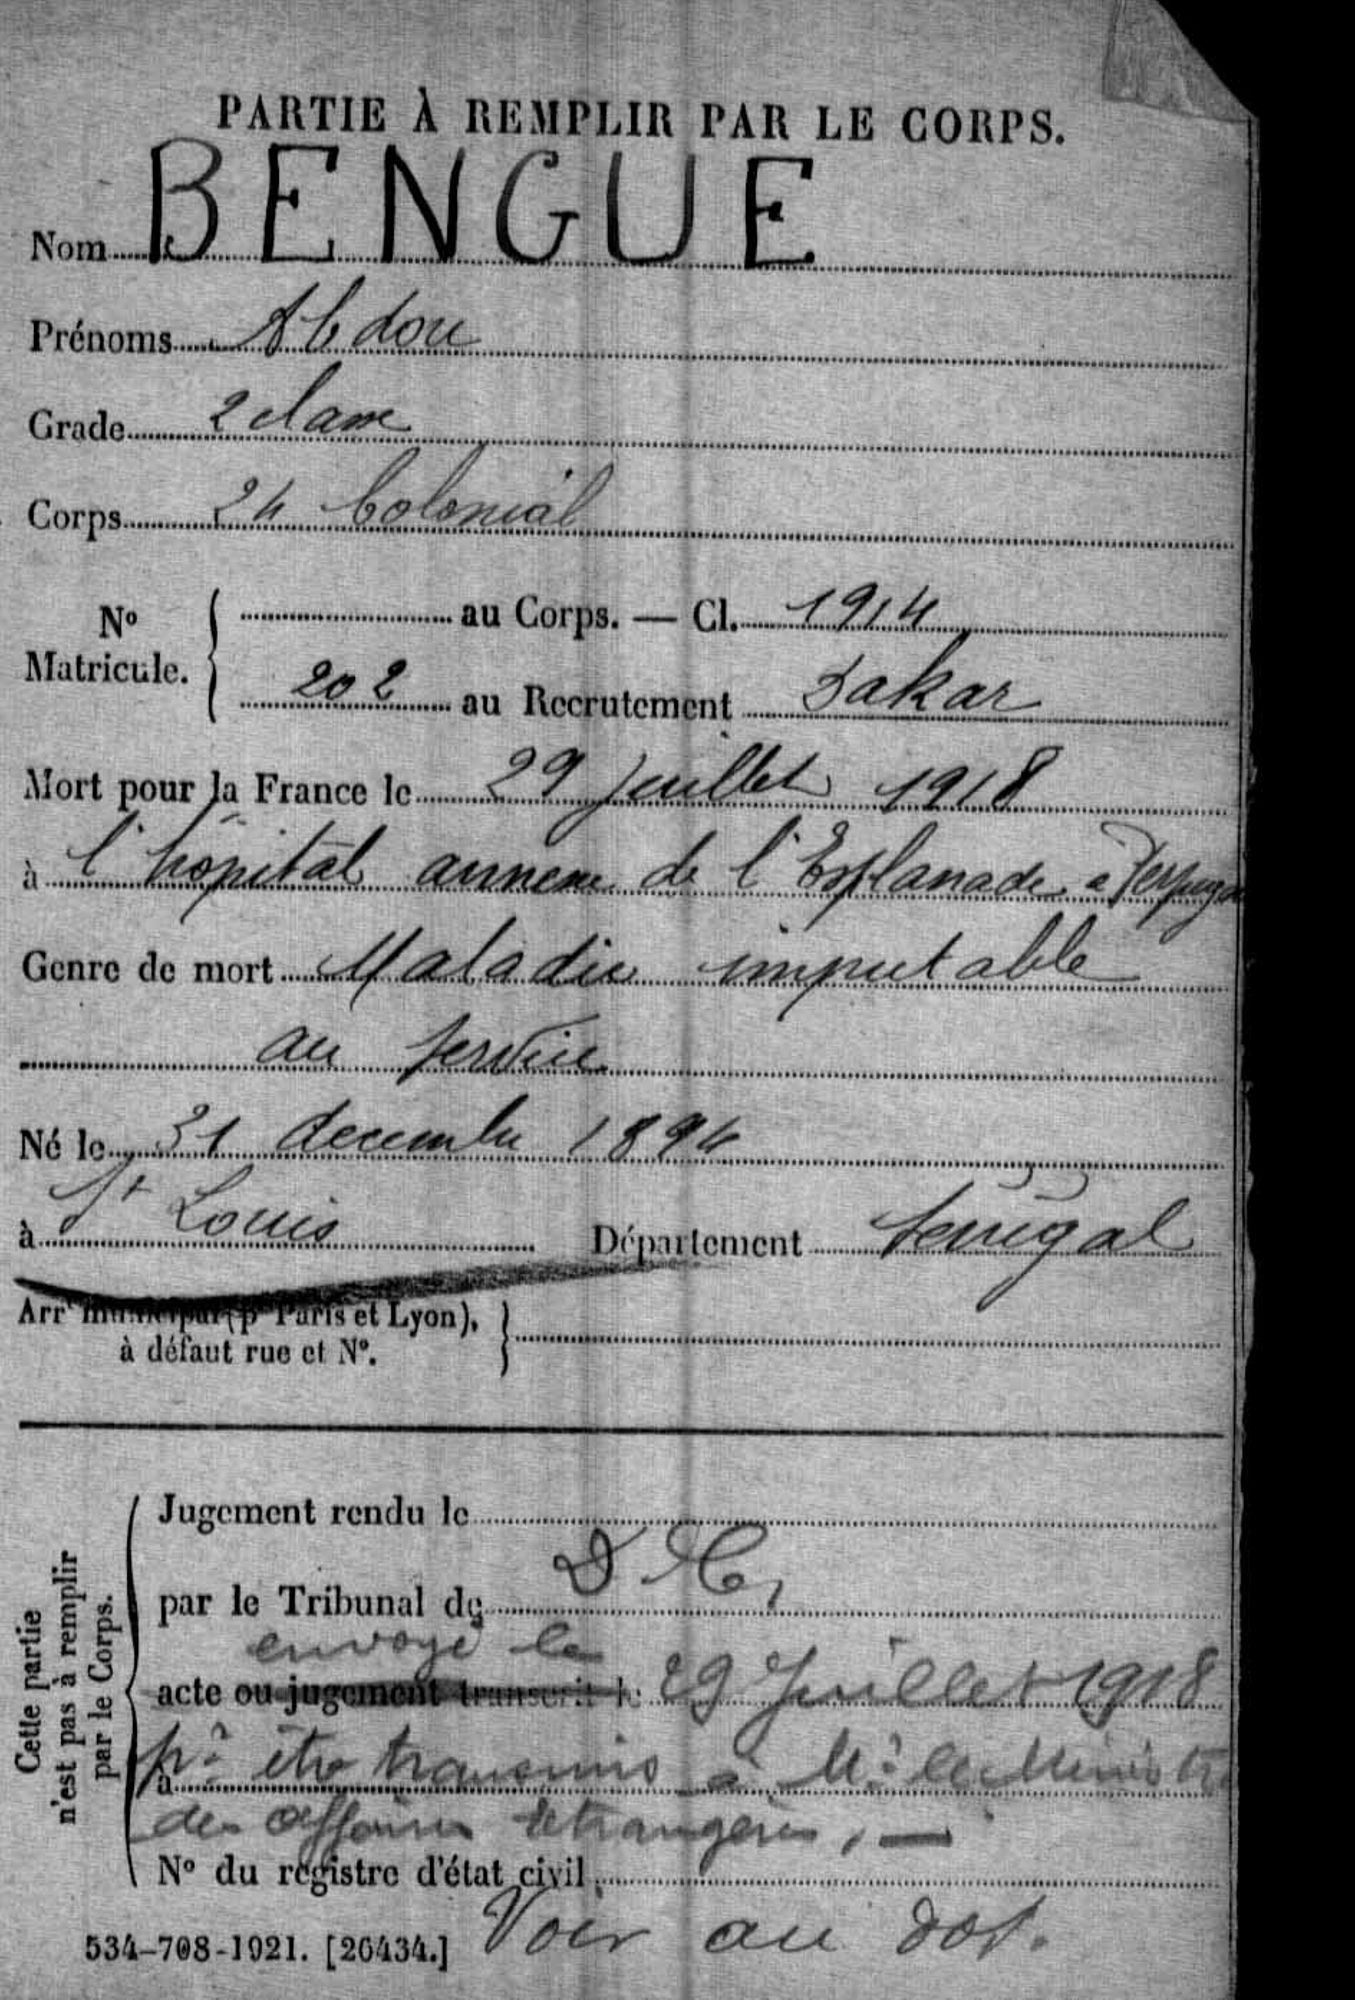 PARTIE À REMPLIR PAR LE CORPS.
Nom BENGUE
Prénoms Abdou
Grade 2 classe
Corps 24 Colonial
No Matricule. { au Corps. — Cl. 1914
202 au Recrutement Dakar
Mort pour la France le 29 juillet 1918
à l'hôpital annexe de l'Esplanade à
Genre de mort Maladie imputable
au service
Né le 31 decembre 1894
à St Louis Département Sénégal
Arrt municipal (pr Paris et Lyon), }
à défaut rue et No.
Cette partie
n'est pas à remplir
par le Corps.
Jugement rendu le
par le Tribunal de
envoyé le
acte ou jugement transcrit le 29 Juillet 1918
pr être transmis à Mr le Ministre
à
des affaires Etrangères, —
No du registre d'état civil
534-708-1921. [26434.] Voir au dos.